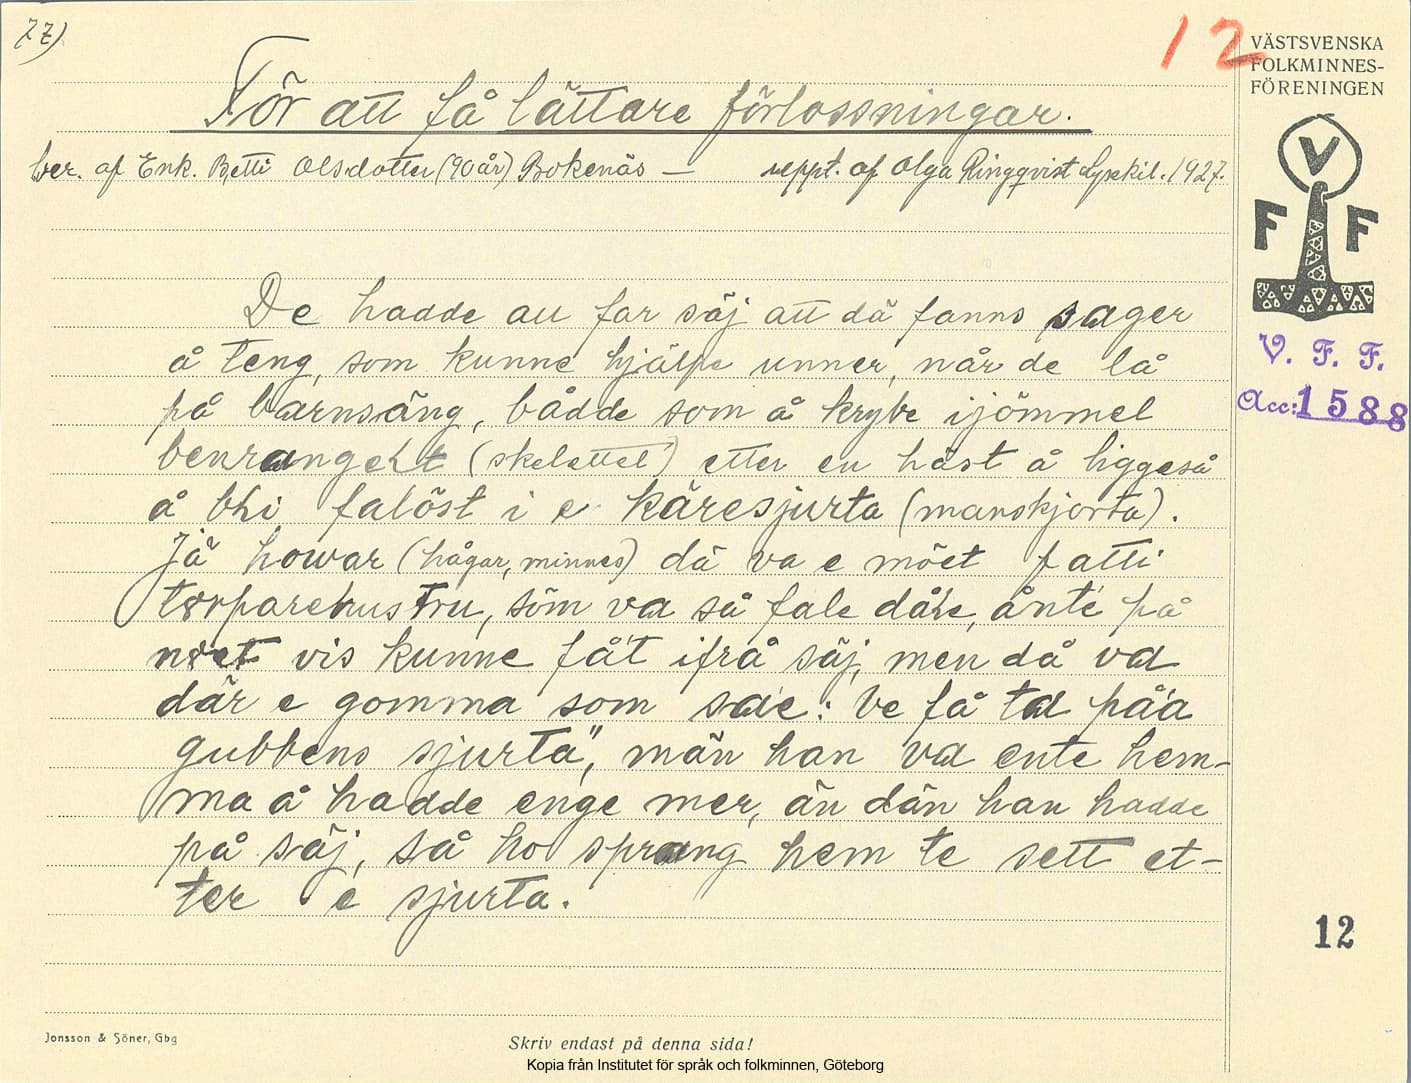 77)
12
VÄSTSVENSKA
FOLKMINNES-
FÖRENINGEN
För att få lättare förlossningar.
ber. af Enk. Betti Olsdotter (90 år) Bokenäs — uppt. af Olga Ringqvist Lysekil. 1927.
V
F F
V. F. F.
Acc: 1588
De hadde au far säj att dä fanns sager
å teng, som kunne hjälpe unner, når de lå
på barnsäng, bådde som å krybe ijömmel
benranglet (skelettet) etter en häst å liggeså
å bli falöst i e käresjurta (manskjorta).
Jä howar (hågar, minnes) dä va e möet fatti
torparehustru, söm va så fale dåle, ånte på
nöet vis kunne få't ifrå säj, men då va
där e gomma som sa'e: Ve få ta på'a
gubbens sjurta", män han va ente hem-
ma å hadde enge mer, än dän han hadde
på säj, så ho sprang hem te sett et-
ter e sjurta.
12
Jonsson & Söner, Gbg
Skriv endast på denna sida!
Kopia från Institutet för språk och folkminnen, Göteborg